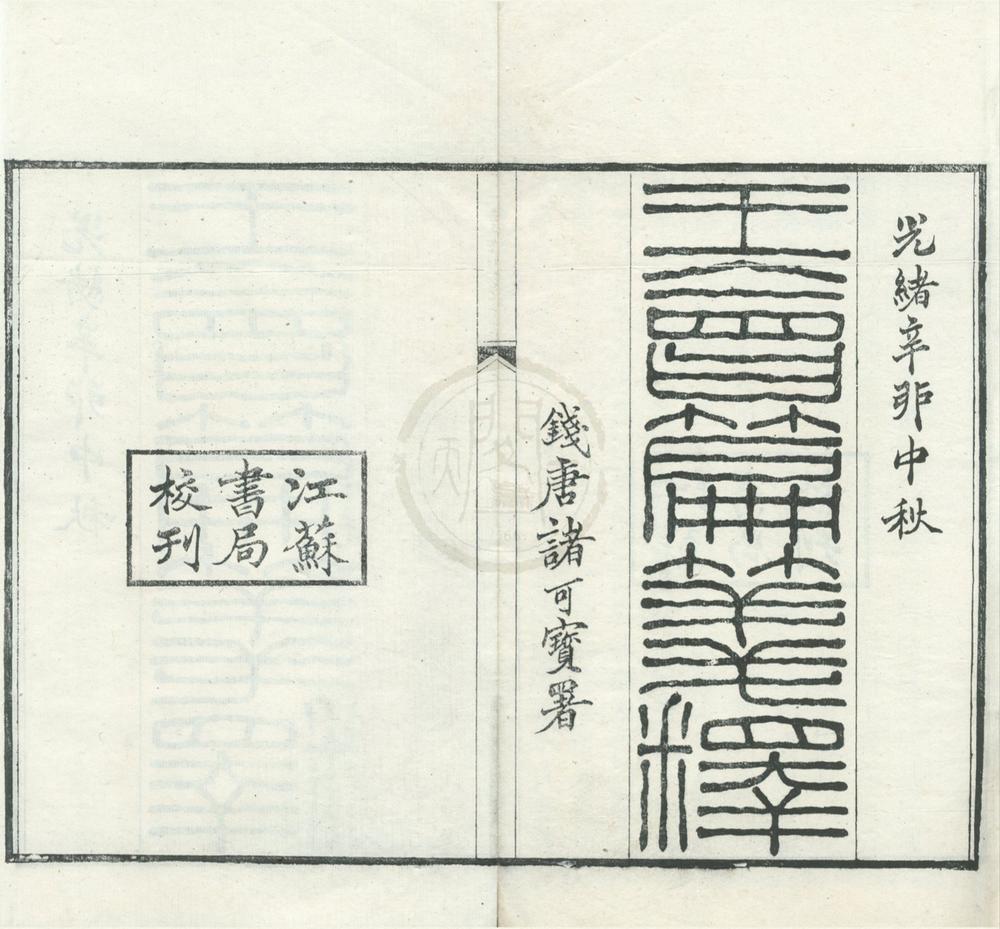 光緒辛卯中秋
王會篇箋釋
錢唐諸可寶署
江蘇
書局
校刊